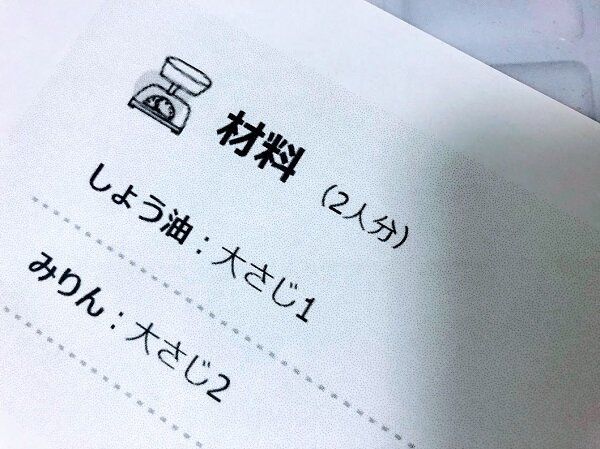 材料 (2人分)
しょう油：大さじ1
みりん：大さじ2